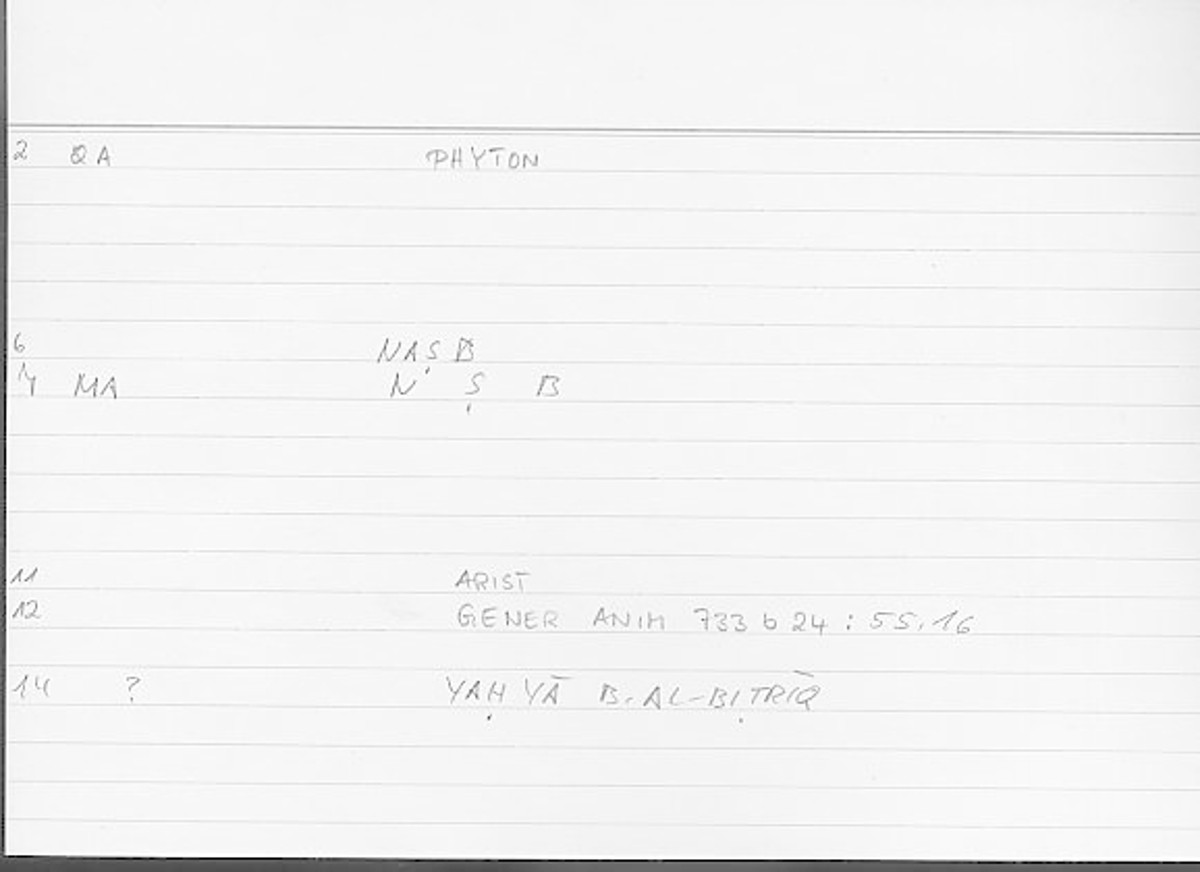 2 QA PHYTON
6 NAṢB
7 MA N Ṣ B
11 ARIST
12 GENER ANIM 733 b 24 : 55,16
14 ? YAḤYĀ B. AL-BIṬRĪQ